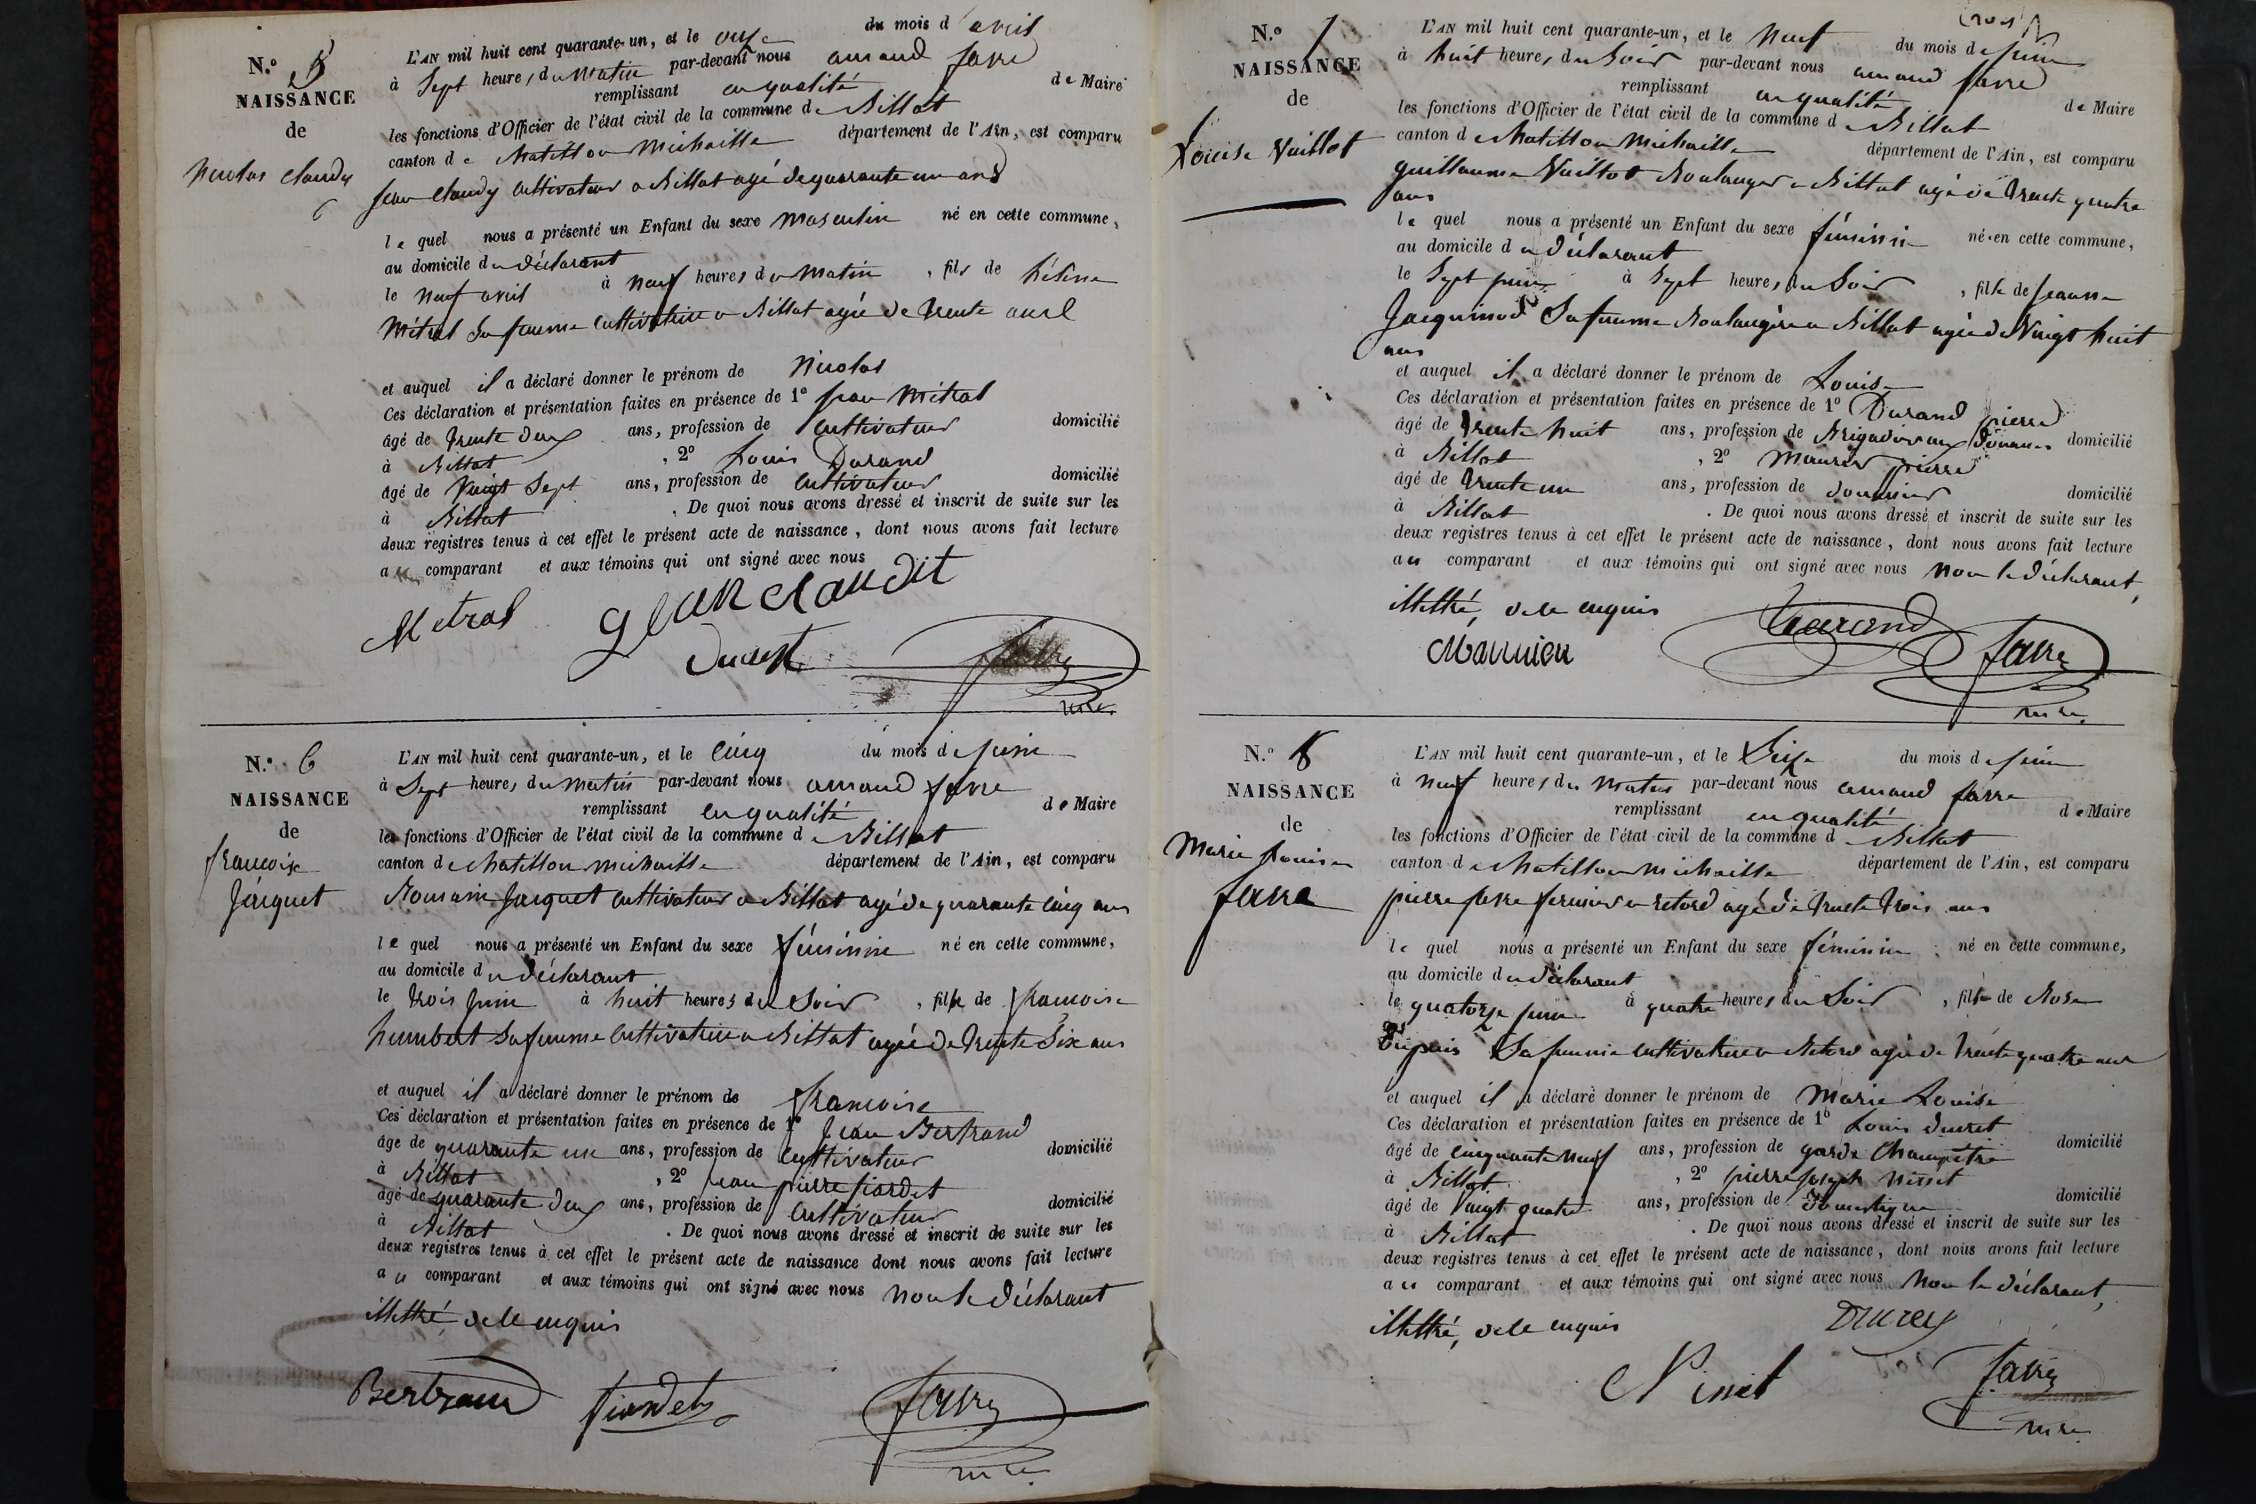 N.º 5
NAISSANCE
de
Nicolas Claudy
L'AN mil huit cent quarante-un, et le onze du mois d'avril
à Sept heures du Matin par-devant nous amand favre
remplissant en qualité de Maire
les fonctions d'Officier de l'état civil de la commune de Billat
canton de Chatillon Michaille département de l'Ain, est comparu
jean Claudy Cultivateur a Billat agé de quarante un ans
le quel nous a présenté un Enfant du sexe masculin né en cette commune,
au domicile du déclarant
le neuf avril à neuf heures du matin, fils de hélène
Métral Sa femme Cultivatrice a Billat agée de trente ans
et auquel il a déclaré donner le prénom de Nicolas
Ces déclaration et présentation faites en présence de 1º jean Métral
âgé de trente deux ans, profession de Cultivateur domicilié
à Billat, 2º Louis
âgé de Vingt Sept ans, profession de Cultivateur domicilié
à Billat. De quoi nous avons dressé et inscrit de suite sur les
deux registres tenus à cet effet le présent acte de naissance, dont nous avons fait lecture
au comparant et aux témoins qui ont signé avec nous
Metral Jean claudit
favre
mre
N.º 6
NAISSANCE
de
françoise
Jacquet
L'AN mil huit cent quarante-un, et le Cinq du mois de juin
à Sept heures du matin par-devant nous amand favre
remplissant en qualité de Maire
les fonctions d'Officier de l'état civil de la commune de Billat
canton de Chatillon michaille département de l'Ain, est comparu
Romain Jacquet Cultivateur a Billat agé de quarante Cinq ans
le quel nous a présenté un Enfant du sexe féminin né en cette commune,
au domicile du déclarant
le trois Juin à huit heures du Soir, fille de françoise
humbert Sa femme Cultivatrice a Billat agée de trente Six ans
et auquel il a déclaré donner le prénom de françoise
Ces déclaration et présentation faites en présence de 1º Jean Bertrand
âge de quarante un ans, profession de Cultivateur domicilié
à Billat, 2º jean pierre fiardet
âgé de quarante deux ans, profession de Cultivateur domicilié
à Billat. De quoi nous avons dressé et inscrit de suite sur les
deux registres tenus à cet effet le présent acte de naissance dont nous avons fait lecture
au comparant et aux témoins qui ont signé avec nous non le déclarant
illettré, de ce enquis
Bertrand fiardet favre
mre
N.º 7
NAISSANCE
de
Louise Vaillot
L'AN mil huit cent quarante-un, et le Neuf du mois de juin
à huit heures du Soir par-devant nous amand favre
remplissant en qualité de Maire
les fonctions d'Officier de l'état civil de la commune de Billat
canton de Chatillon Michaille département de l'Ain, est comparu
guillaume Vaillot Boulanger a Billat agé de trente quatre
ans
le quel nous a présenté un Enfant du sexe féminin né en cette commune,
au domicile du déclarant
le Sept juin à Sept heures du Soir, fille de jeanne
Jacquinod Sa femme Boulangère a Billat agée de Vingt huit
ans
et auquel il a déclaré donner le prénom de Louise
Ces déclaration et présentation faites en présence de 1º Durand pierre
âgé de trente huit ans, profession de Brigadier aux Douanes domicilié
à Billat, 2º Meunier pierre
âgé de trente un ans, profession de douanier domicilié
à Billat. De quoi nous avons dressé et inscrit de suite sur les
deux registres tenus à cet effet le présent acte de naissance, dont nous avons fait lecture
au comparant et aux témoins qui ont signé avec nous non le déclarant,
illettré, de ce enquis
Durand favre
mre
N.º 8
NAISSANCE
de
Marie Louise
favre
L'AN mil huit cent quarante-un, et le Seize du mois de juin
à neuf heures du matin par-devant nous amand favre
remplissant en qualité de Maire
les fonctions d'Officier de l'état civil de la commune de Billat
canton de Chatillon michaille département de l'Ain, est comparu
pierre favre fermier a retord agé de trente trois ans
le quel nous a présenté un Enfant du sexe féminin né en cette commune,
au domicile du déclarant
le quatorze juin à quatre heures du Soir, fille de Rose
Sa femme Cultivatrice a Retord agée de trente quatre ans
et auquel il a déclaré donner le prénom de Marie Louise
Ces déclaration et présentation faites en présence de 1º Louis Ducret
âgé de cinquante neuf ans, profession de garde Champêtre domicilié
à Billat, 2º pierre joseph Ninet
âgé de Vingt quatre ans, profession de Domestique domicilié
à Billat. De quoi nous avons dressé et inscrit de suite sur les
deux registres tenus à cet effet le présent acte de naissance, dont nous avons fait lecture
au comparant et aux témoins qui ont signé avec nous Non le déclarant,
illettré, de ce enquis
Ninet favre
mre